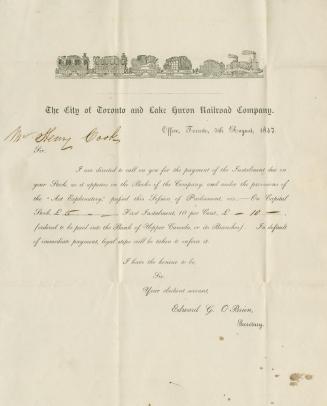 The City of Toronto and Lake Huron Railroad Company.
Office, Toronto, 5th August, 1847.
Mr Henry Cook
Sir,
I am directed to call on you for the payment of the Instalment due on
your Stock, as it appears in the Books of the Company, and under the provisions of
the "Act Explanatory," passed this Session of Parliament, viz:— On Capital
Stock, £ 5 — First Instalment, 10 per Cent, £ — 10 —
(ordered to be paid into the Bank of Upper Canada, or its Branches.) In default
of immediate payment, legal steps will be taken to enforce it.
I have the honor to be,
Sir,
Your obedient servant,
Edward G. O'Brien,
Secretary.